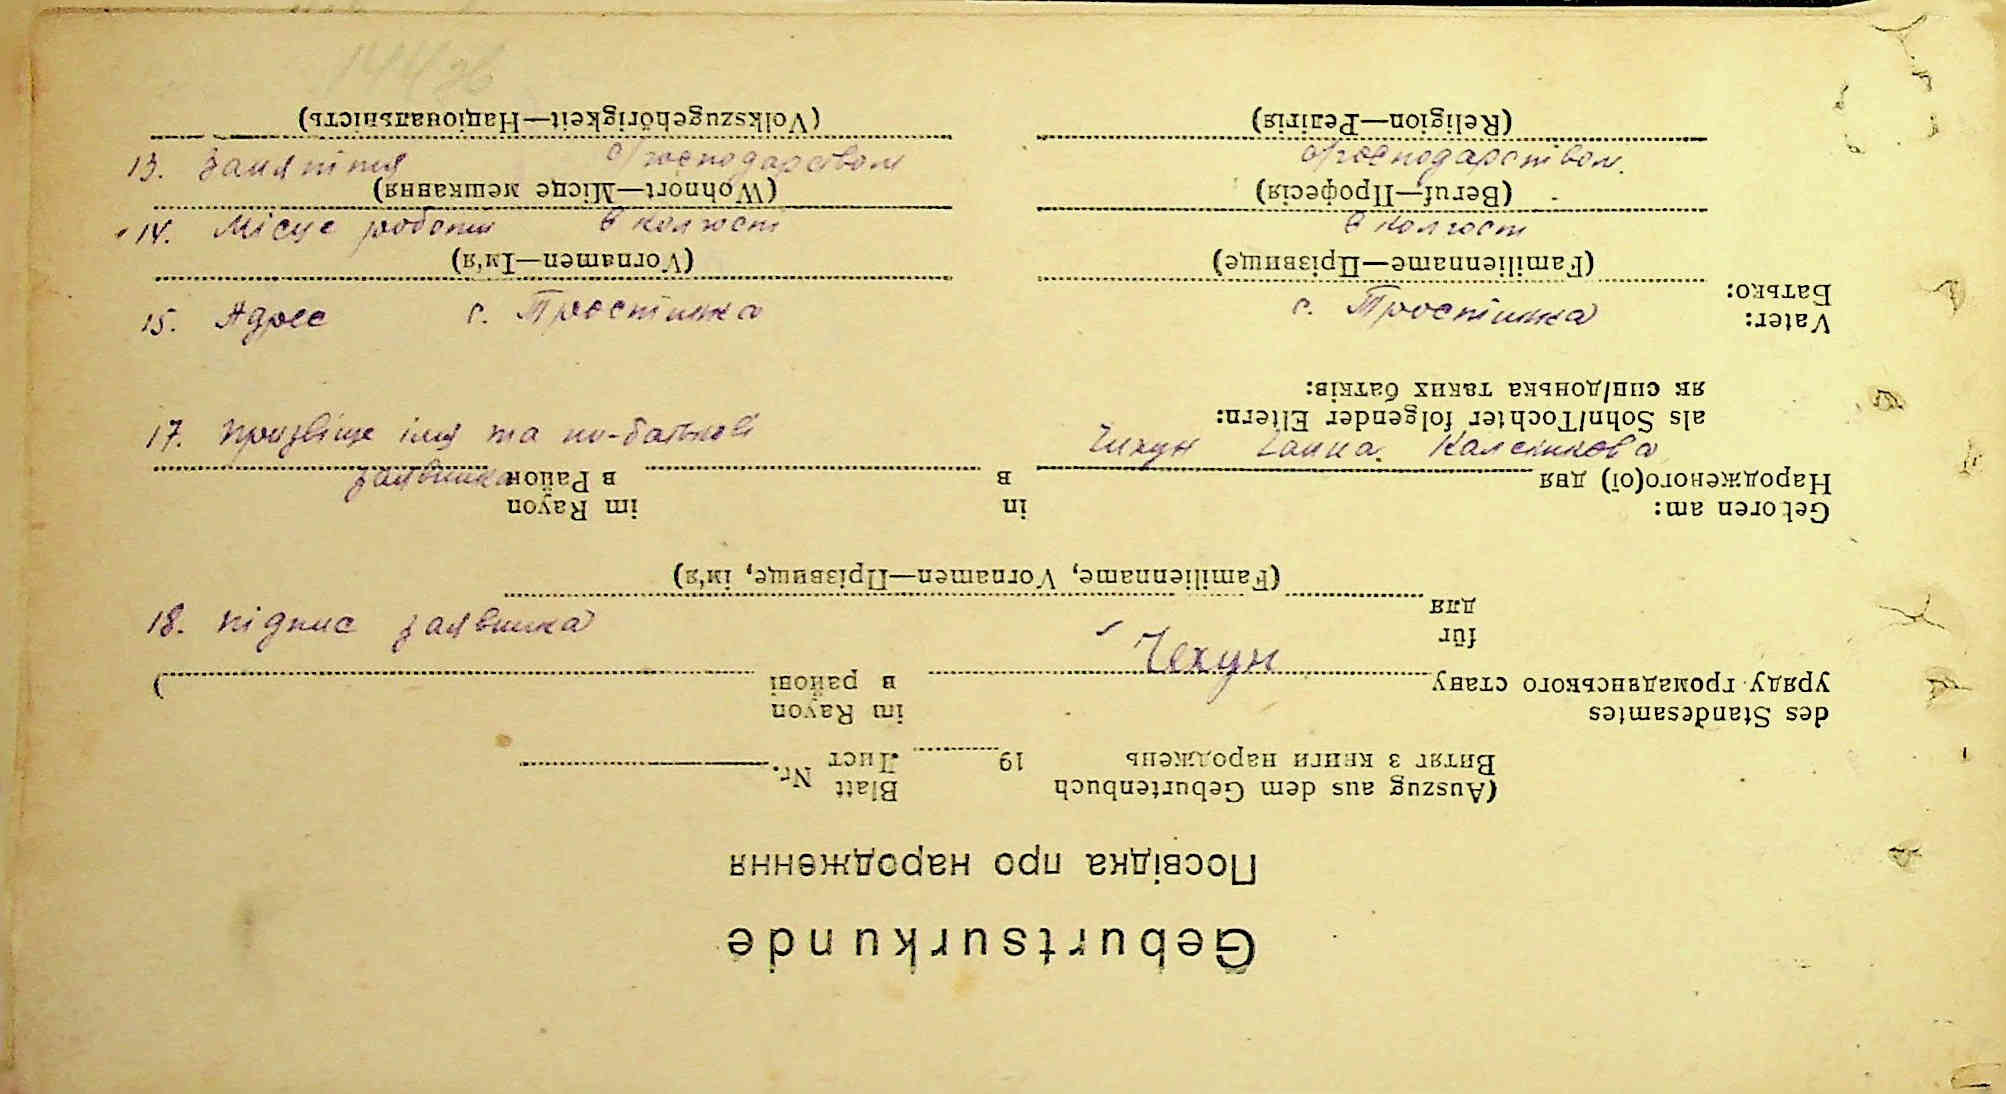 13. Заняття с/господарством с/господарством.
14. Місце роботи в колгосп в колгосп
15. Адрес с. Тростинка с. Тростинка
17. Призвіще імя та по-батькові Чихун Ганна
заявника
18. підпис заявника Чехун
Geburtsurkunde
Посвідка про народження
(Auszug aus dem Geburtenbuch Blatt Nr.
Витяг з книги народжень 19 Лист
des Standesamtes im Rayon
уряду громадянського стану в районі )
für
для
(Familienname, Vornamen—Прізвище, ім'я)
Geboren am: in im Rayon
Народженого(ої) дня в в Район
als Sohn/Tochter folgender Eltern:
як син/донька таких батків:
Vater:
Батько:
(Familienname—Прізвище) (Vornamen—Ім'я)
(Beruf—Професія) (Wohnort—Місце мешкання)
(Religion—Релігія) (Volkszugehörigkeit—Національність)